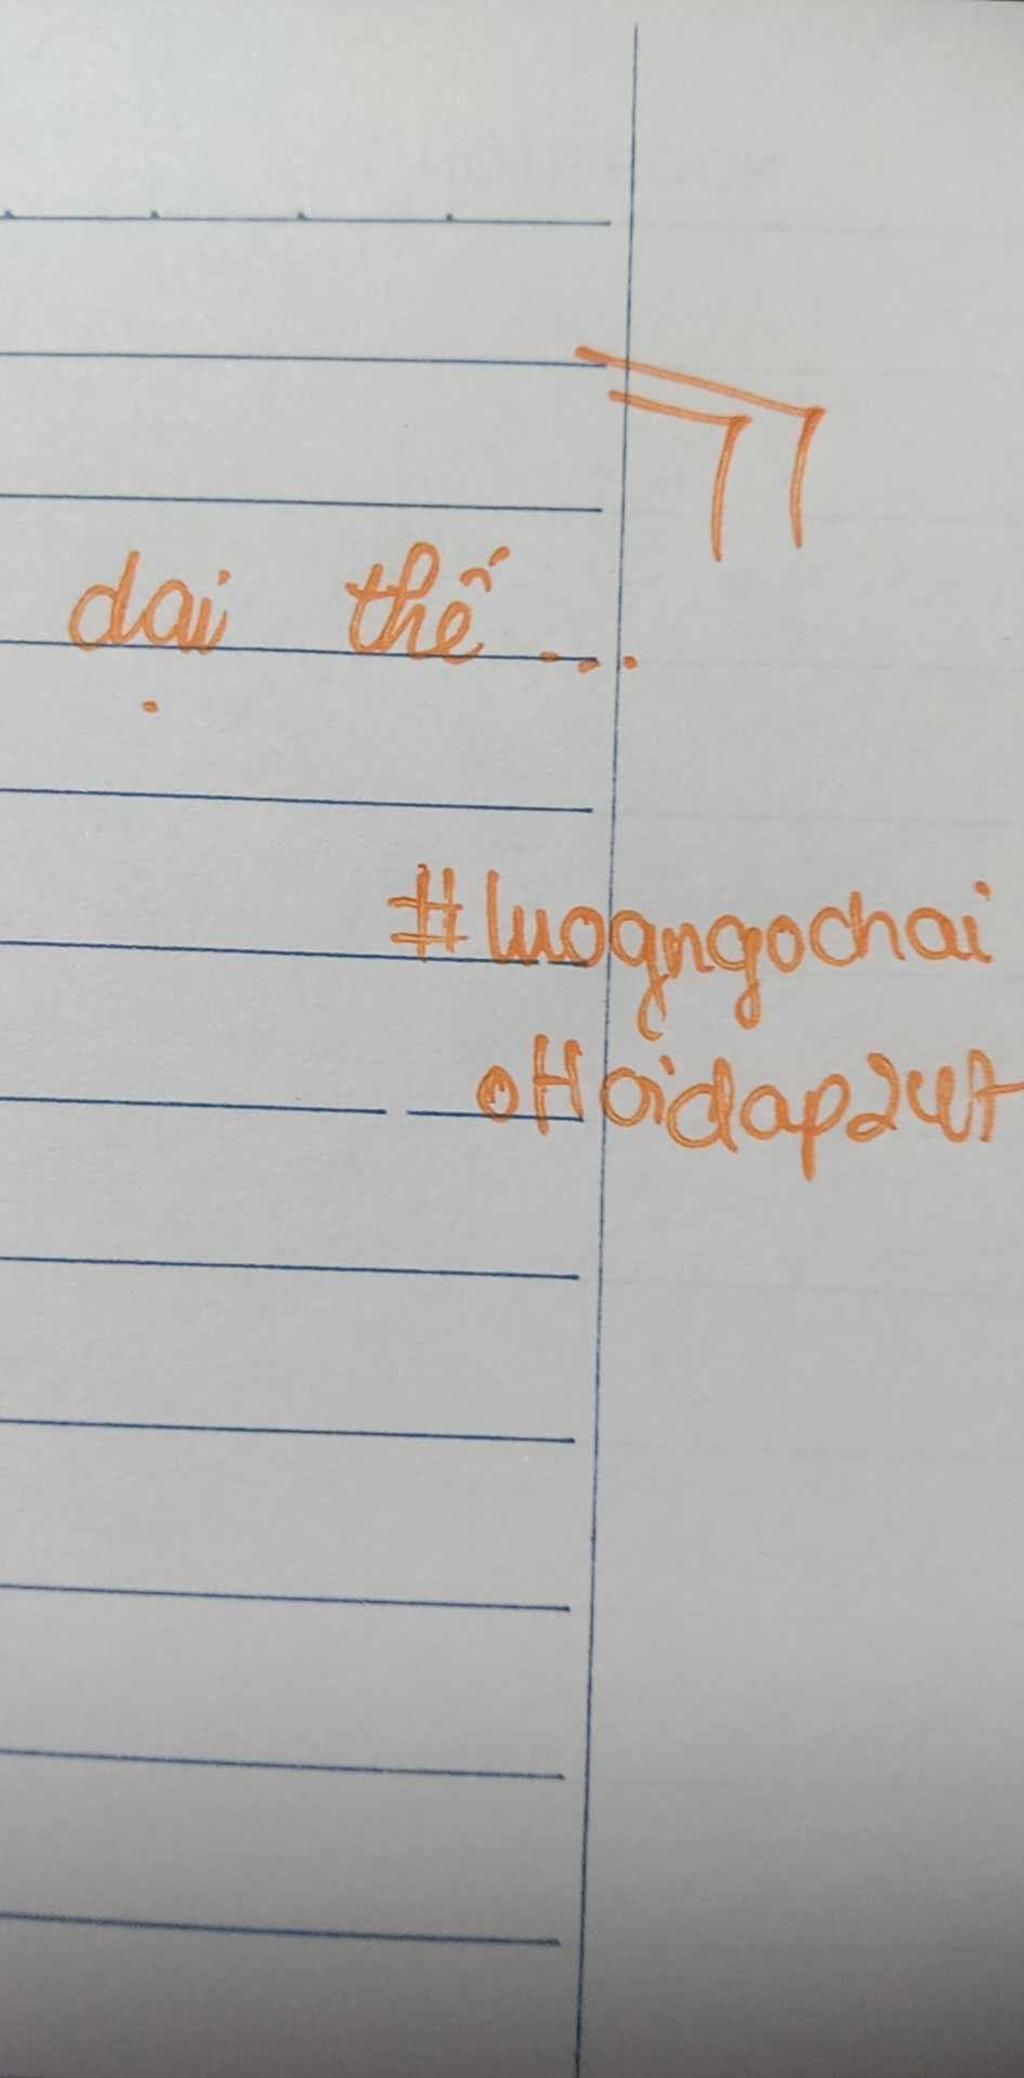 dại thế ...
#luogngochai
Hoidap247